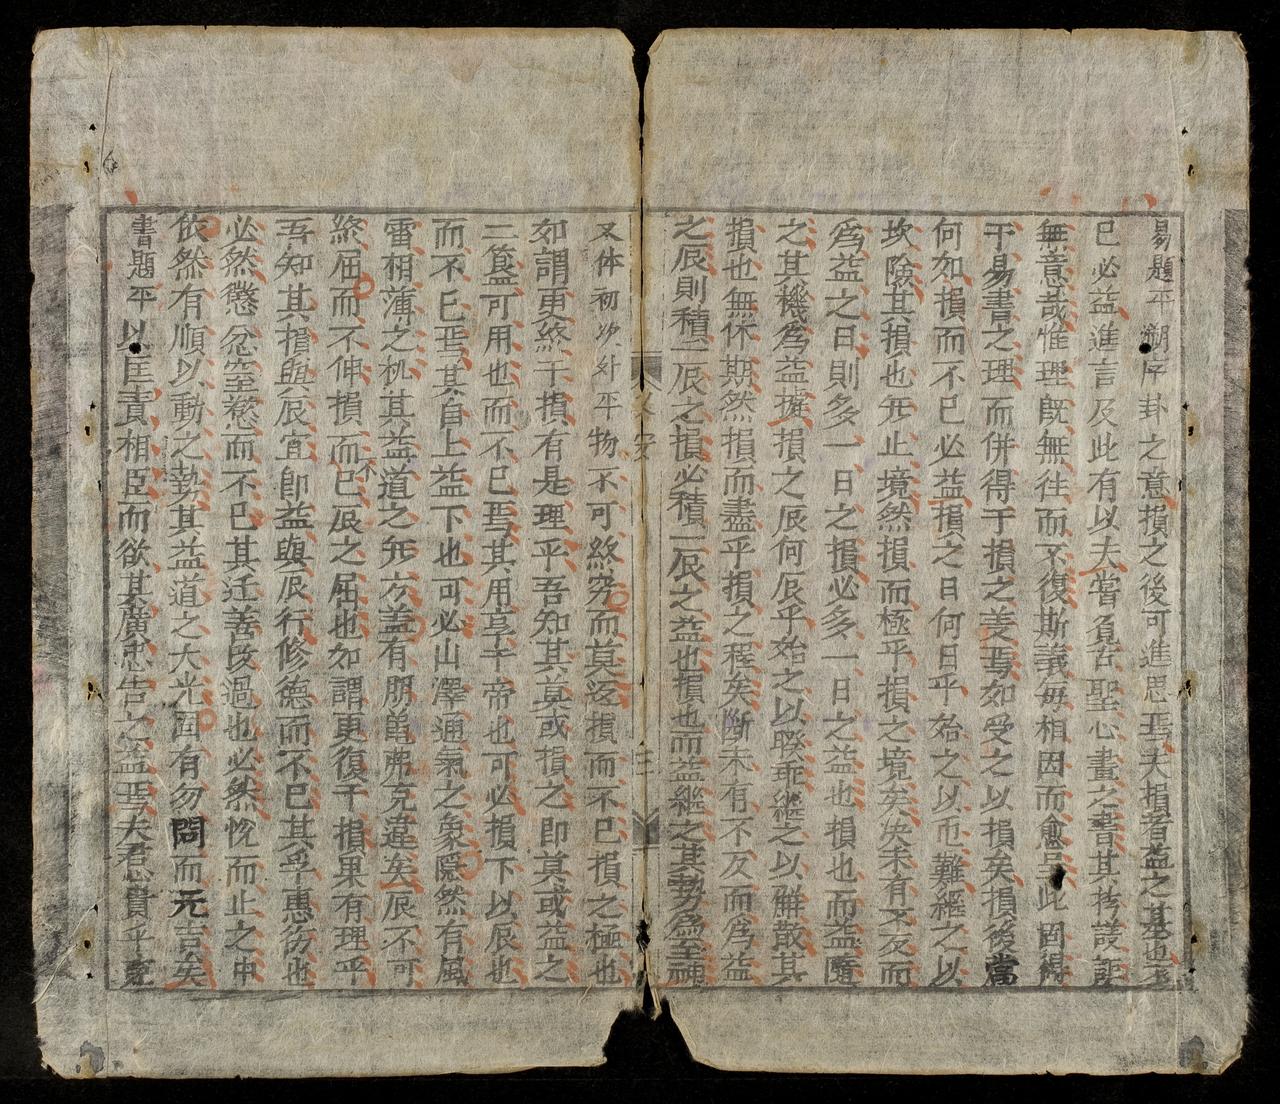 易題平溯序卦之意損之後可進思焉夫損者益之基也
已必益進言及此有以夫嘗負古聖心畫之書其持議
無意哉惟理既無往而不復斯義毎相因而愈此固得
于易書之理而併得于損之羙焉如受之以損矣損後當
何如損而不已必益損之日何日乎始之以帀難繼之以
坎險其損也無止境然損而極乎損之境矣未有不反而
爲益之日則多一日之損必多一日之益也損也而益隨
之其機爲益損之辰何辰乎始之以睽乖繼之以解散其
損也無休期然損而盡乎損之程矣斷未有不反而爲益
之辰則積一辰之損必積一辰之益也損也而益継之其势爲至
又体初次斜平物不可終穷而莫返損而不已損之極也
如謂更終于損有是理乎吾知其莫或損之即莫或益之
二簋可用也而不已焉其用享于帝也可必損下以辰也
而不已焉其自上益下也可必山澤通氣之象隱然有風
雷相薄之机其益道之無方盖有朋龜弗克違矣辰不可
終屈而不伸損而不已辰之屈也如謂更復于損果有理乎
吾知其損與辰宜即益與辰行修德而不已其孚惠彷也
必然懲忿窒慾而不已其迁善改過也必然忱而止之中
依然有順以動之势其益道之大光囯有勿問而元吉矣
書題平以匡責相臣而欲其廣忠告之益焉夫君子